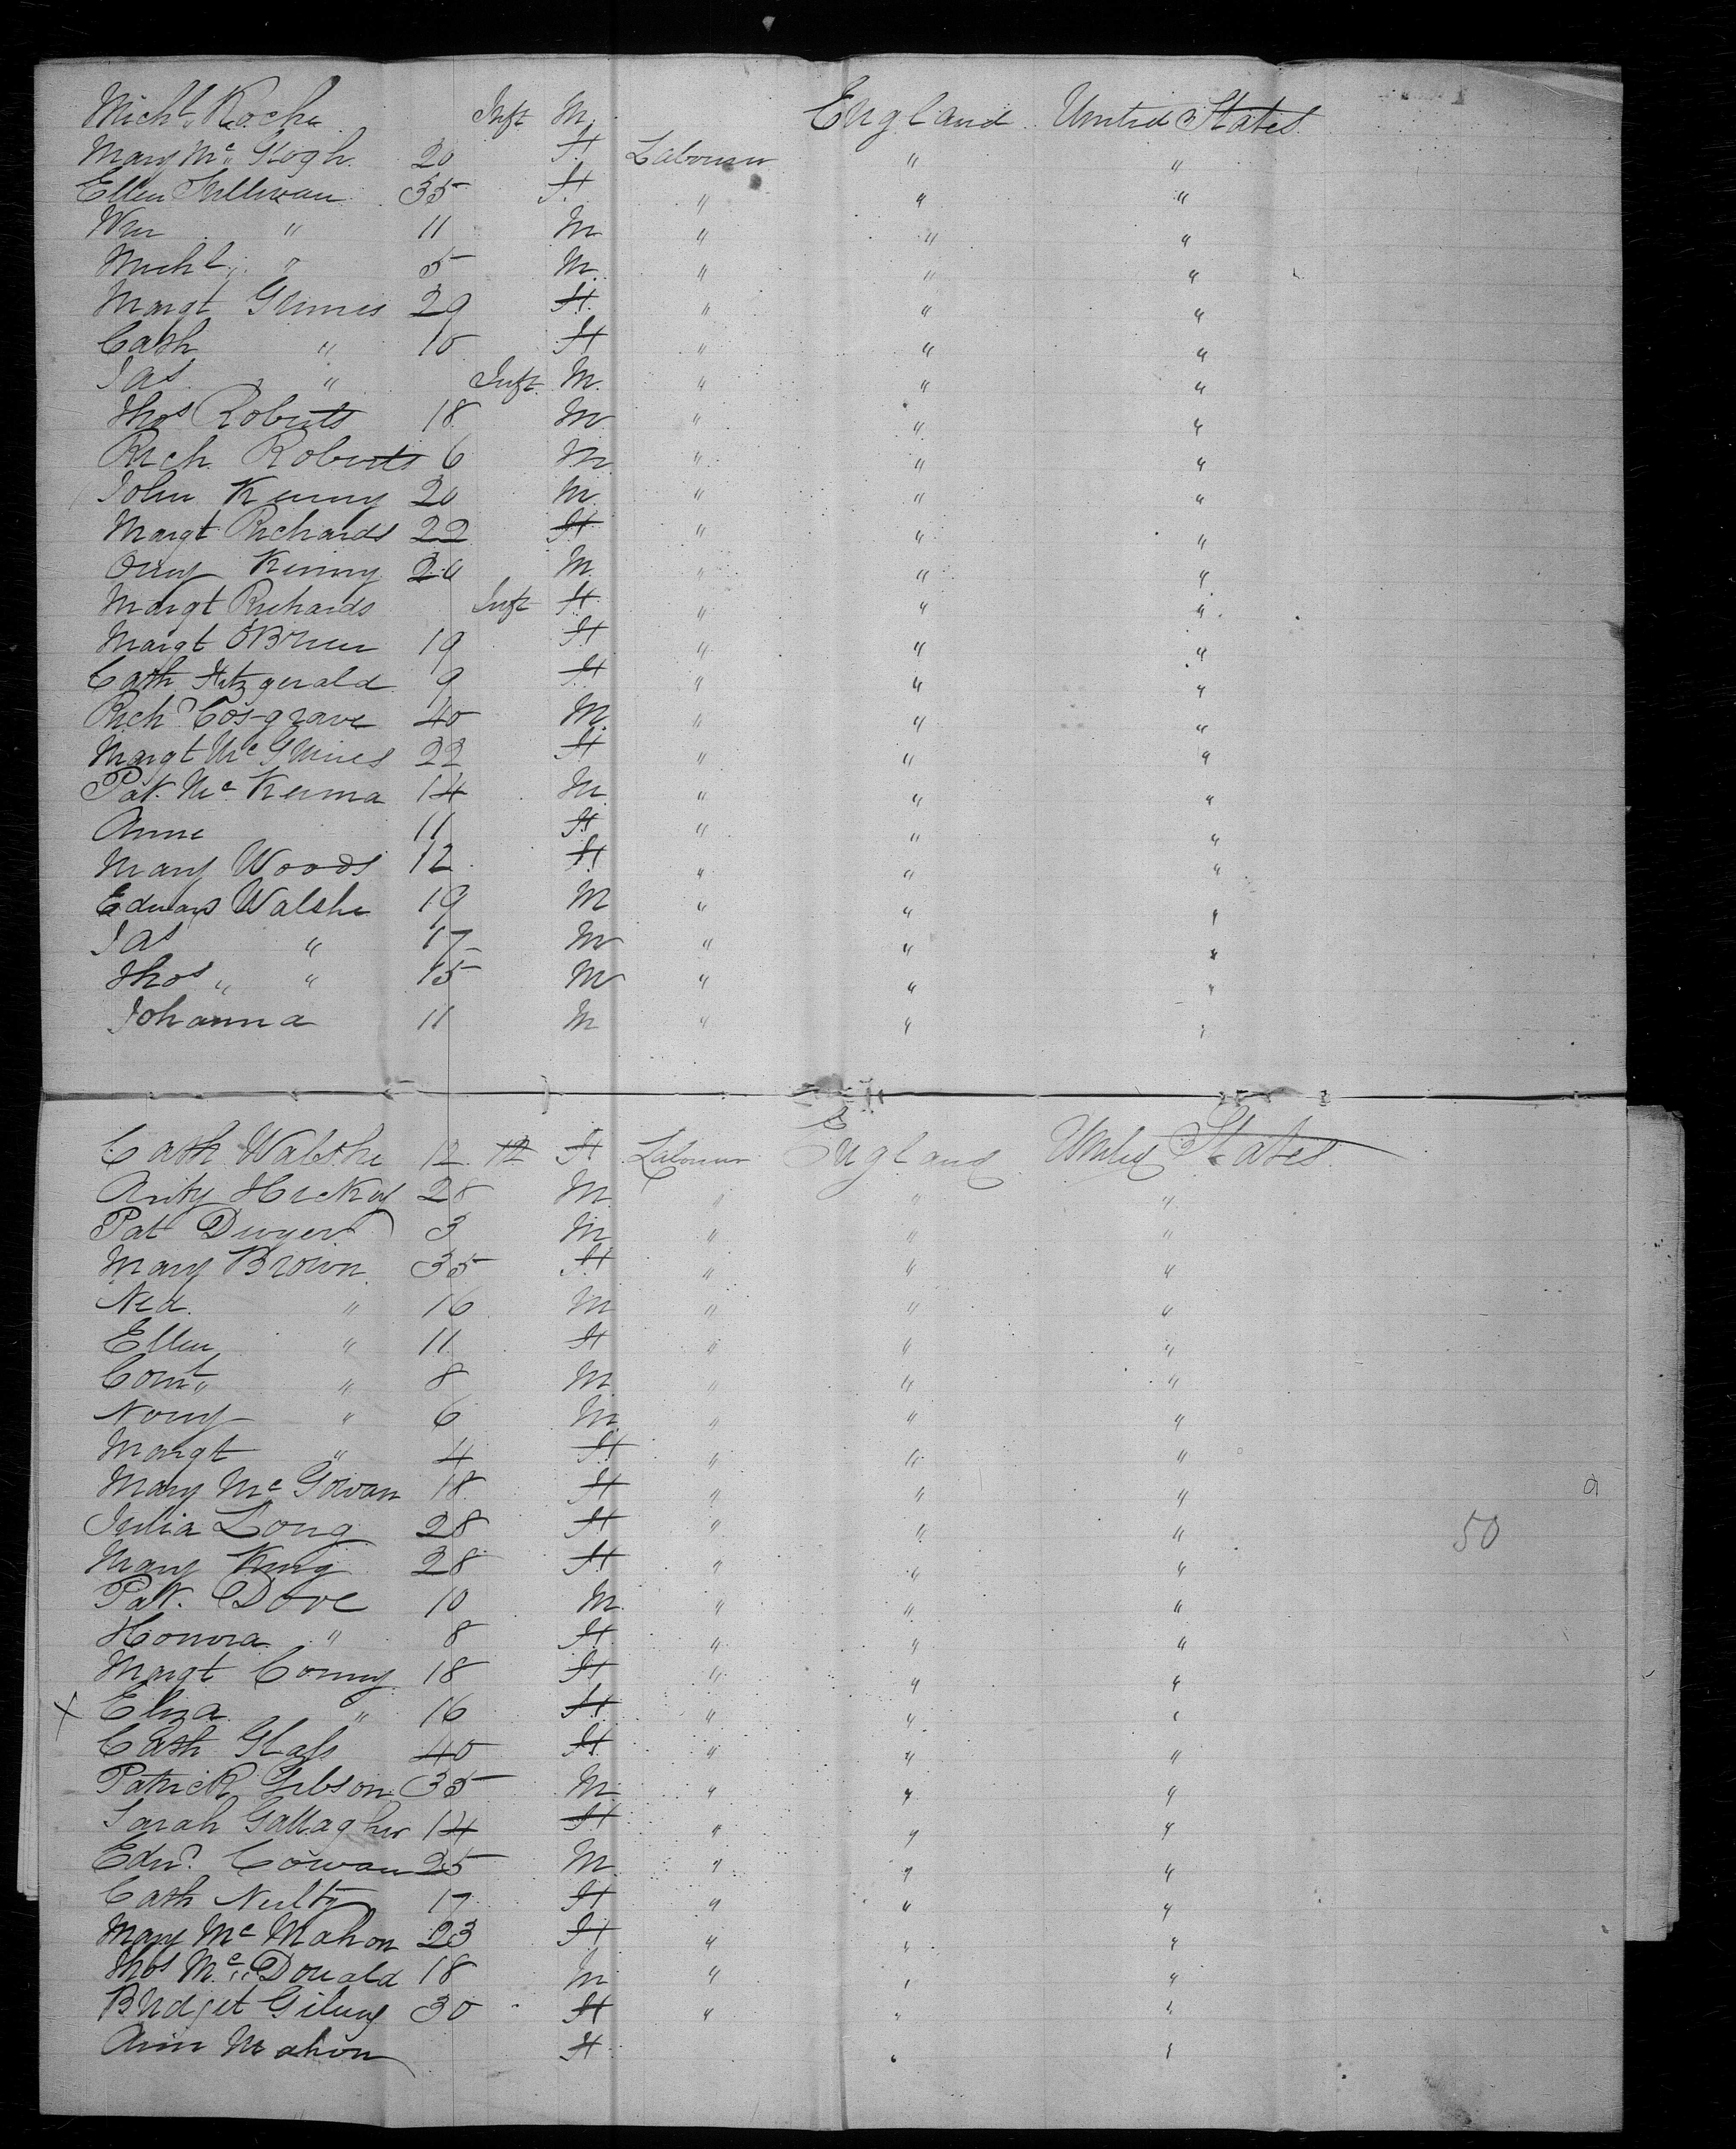 Michl. Roche Inft M. England United States
Mary Mc Keogh 20 F Labourer " "
Ellen Sullivan 35 F. " " "
Wm " 11 M " " "
Michl " 5 M. " " "
Margt Grimes 29 F. " " "
Cath " 10 F " " "
Jas " Inft. M. " " "
Thos Roberts 18 M " " "
Rich. Roberts 6 M " " "
John Kenny 20 M. " " "
Margt Richards 22 F " " "
Kenny 20 M. " " "
Margt Richards Inft F " " "
Margt O'Brien 19 F " " "
Cath Fitzgerald 9 F " " "
Richd Cosgrave 40 M. " " "
Margt Mc 22 F " " "
Pat. Mc Kenna 14 M. " " "
Anne 11 F " " "
Mary Woods 12 F " " "
Edward Walshe 19 M " " "
Jas " 17 M " " "
Thos " " 15 M " " "
Johanna 11 M " " "
Cath Walshe 12 12 F Labourer England United States
Anty Hickey 28 M " " "
Pat Dwyer 3 M " " "
Mary Brown 35 F " " "
Ned. " 16 M " " "
Ellen " 11 F " " "
" 8 M " " "
" 6 M " " "
Margt " 4 F " " "
Mary Mc Gowan 18 F " " "
Julia Long 28 F " " " 50
Mary King 28 F " " "
Pat. Dove 10 M. " " "
Honora " 8 F " " "
Margt Conny 18 F " " "
x Eliza " 16 F " " "
Cath Glass 40 F " " "
Patrick Gibson 35 M. " " "
Sarah Gallagher 14 F " " "
Edwd. Cowan 25 M " " "
Cath Nulty 17 F " " "
Mary Mc Mahon 23 F " " "
Thos Mc Donald 18 M " " "
Bridget 30 F " " "
Ann Mahon F " "